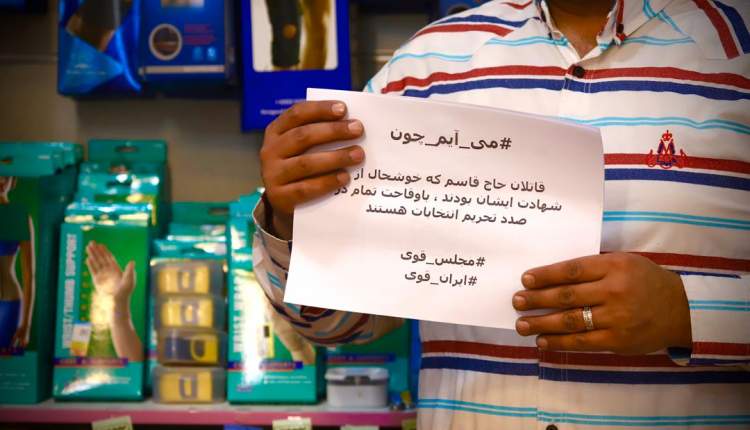 #می_آیم_چون
قاتلان حاج قاسم که خوشحال از
شهادت ایشان بودند ، باوقاحت تمام در
صدد تحریم انتخابات هستند
#مجلس_قوی
#ایران_قوی
WRIST/THUMB SUPPORT